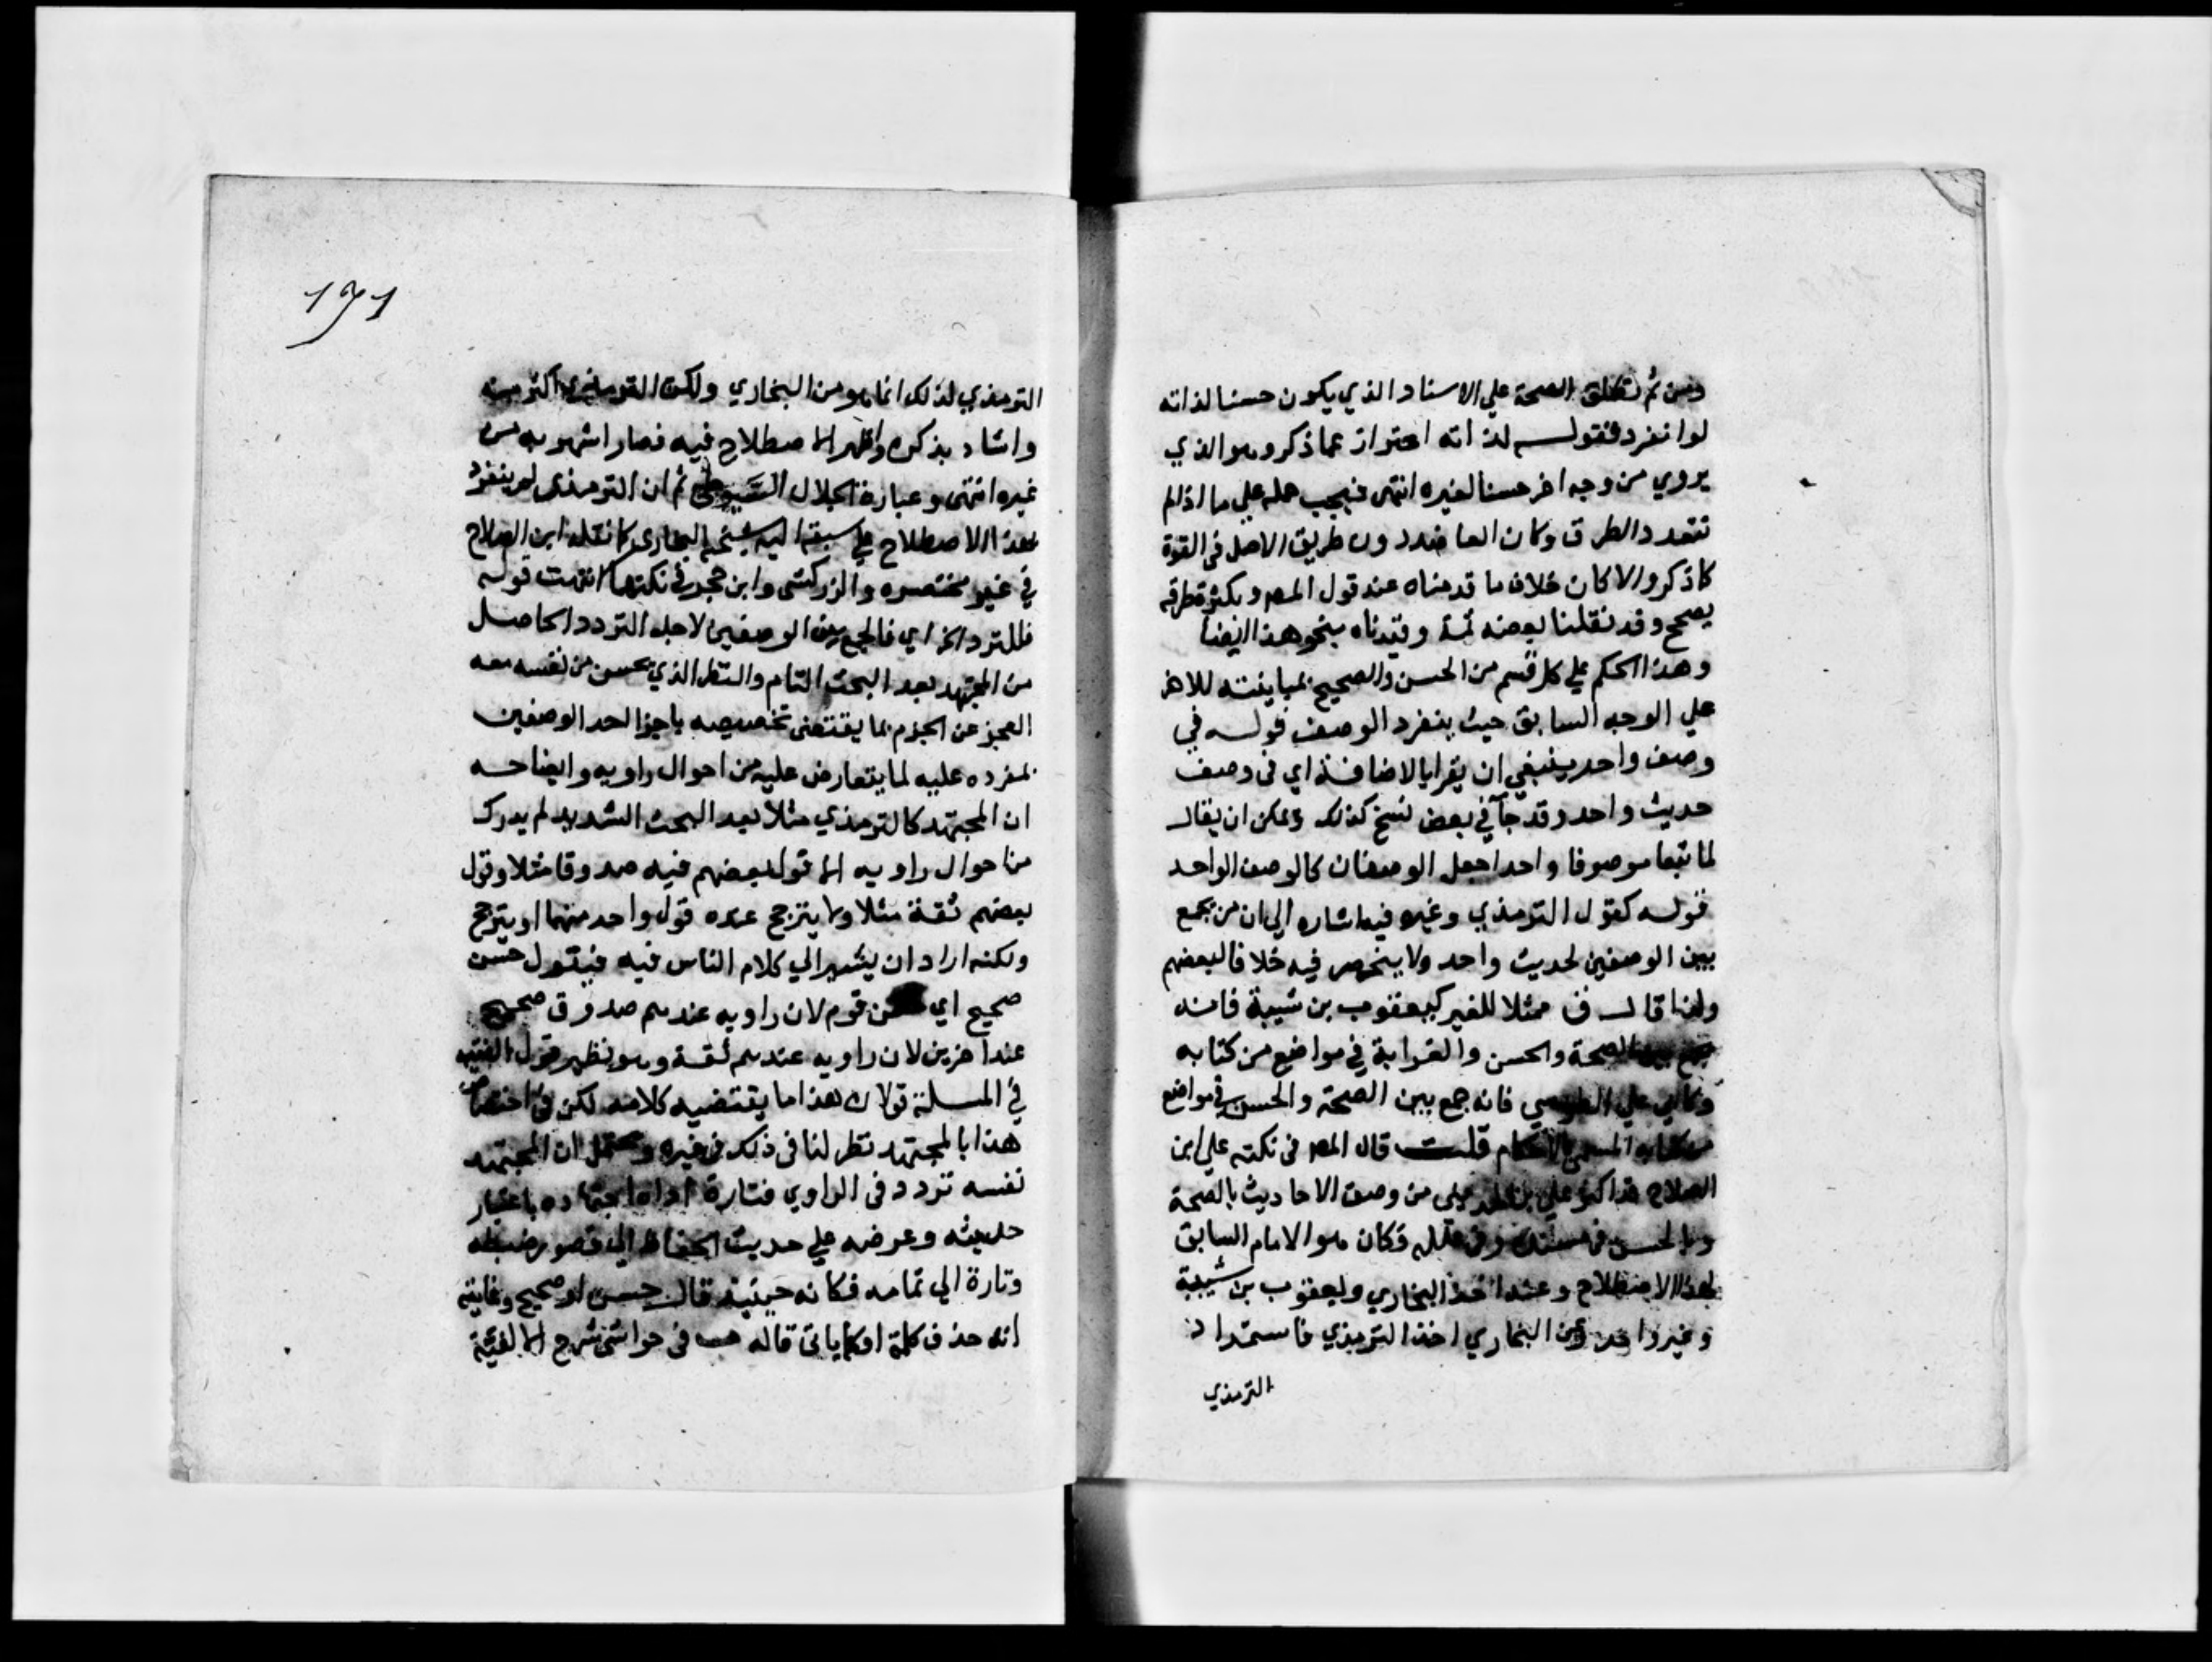 ومن ثم تطلق الصحة علي الاسناد الذي يكون حسنا لذاته
لوانفرد فقولـــه لذاته احتراز عما ذكر وهو الذي
يروي من وجه اخر حسنا لغيره انتهى فيجب حمله علي ما اذا لم
تتعدد الطرق وكان العاضد دون طريق الاصل في القوة
كما ذكر والا كان خلاف ما قدمناه عند قول المص وبكثرة طرقه
يصحح وقد نقلنا بعضه ثمة وقيدناه بنحو هذا ايضا
وهذا الحكم علي كل قسم من الحسن والصحيح بمباينته للاخر
علي الوجه السابق حيث ينفرد الوصف قولـه في
وصف واحد ينبغي ان يقرا بالاضافة اي في وصف
حديث واحد وقد جآ في بعض نسخ كذلك ويمكن ان يقال
لما تبعا موصوفا واحدا جعل الوصفان كالوصف الواحد
قولـه كقول الترمذي وغيره فيه اشاره الي ان من يجمع
بين الوصفين لحديث واحد ولا ينحصر فيه خلافا لبعضهم
ولذا قال ق ممثلا للغير كيعقوب بن شيبة فانه
جمع بين الصحة والحسن والغرابة في مواضع من كتابه
وكابي علي الطوسي فانه جمع بين الصحة والحسن في مواضع
من كتابه المسمى بالاحكام قلــت قال المص في نكته علي ابن
الصلاح قد اكثر علي بن المديني من وصف الاحاديث بالصحة
وبالحسن في مسنده وفي علله فكان هو الامام السابق
لهذا الاصطلاح وعنه اخذ البخاري ويعقوب بن شيبة
وغير واحد وعن البخاري اخذ الترمذي فاستمداد
الترمذي
١٧١
الترمذي لذلك انما هو من البخاري ولكن الترمذي اكثر منه
واشاد بذكره واظهر الاصطلاح فيه فصار اشهر به من
غيره انتهى وعبارة الجلال السيوطي ثم ان الترمذي لم ينفرد
بهذا الاصطلاح بل سبقه اليه شيخه البخاري كما نقله ابن الصلاح
في غير مختصره والزركشي وابن حجر في نكتهما انتهت قوله
فللتردد الخ اي فالجمع بين الوصفين لاجل التردد الحاصل
من المجتهد بعد البحث التام والنظر الذي يحس من نفسه معه
العجز عن الجزم بما يقتضي تخصيصه باجرا احد الوصفين
بمفرده عليه لما يتعارض عليه من احوال راويه وايضاحه
ان المجتهد كالترمذي مثلا بعد البحث الشديد لم يدرك
من احوال راويه الا قول بعضهم فيه صدوقا مثلا وقول
بعضهم ثقة مثلا ولا يترجح عنده قول واحد منهما او يترجح
ولكنه اراد ان يشير الي كلام الناس فيه فيقول حسن
صحيح اي قوم لان راويه عندهم صدوق صحيح
عند اخرين لان راويه عندهم ثقة وهو نظير قول الفقيه
في المسلة قولان هذا ما يقتضيه كلامه لكن في اختصاص
هذا بالمجتهد نظر لنا في ذلك في غيره ويحتمل ان المجتهد
نفسه تردد في الراوي فتارة اداه اجتهاده باعتبار
حديثه وعرضه علي حديث الحفاظ الي قصور ضبطه
وتارة الي تمامه فكانه حينئذ قال حسن او صحيح وغايته
انه حذف كلمة او كما ياتي قاله في حواشي شرح الالفية